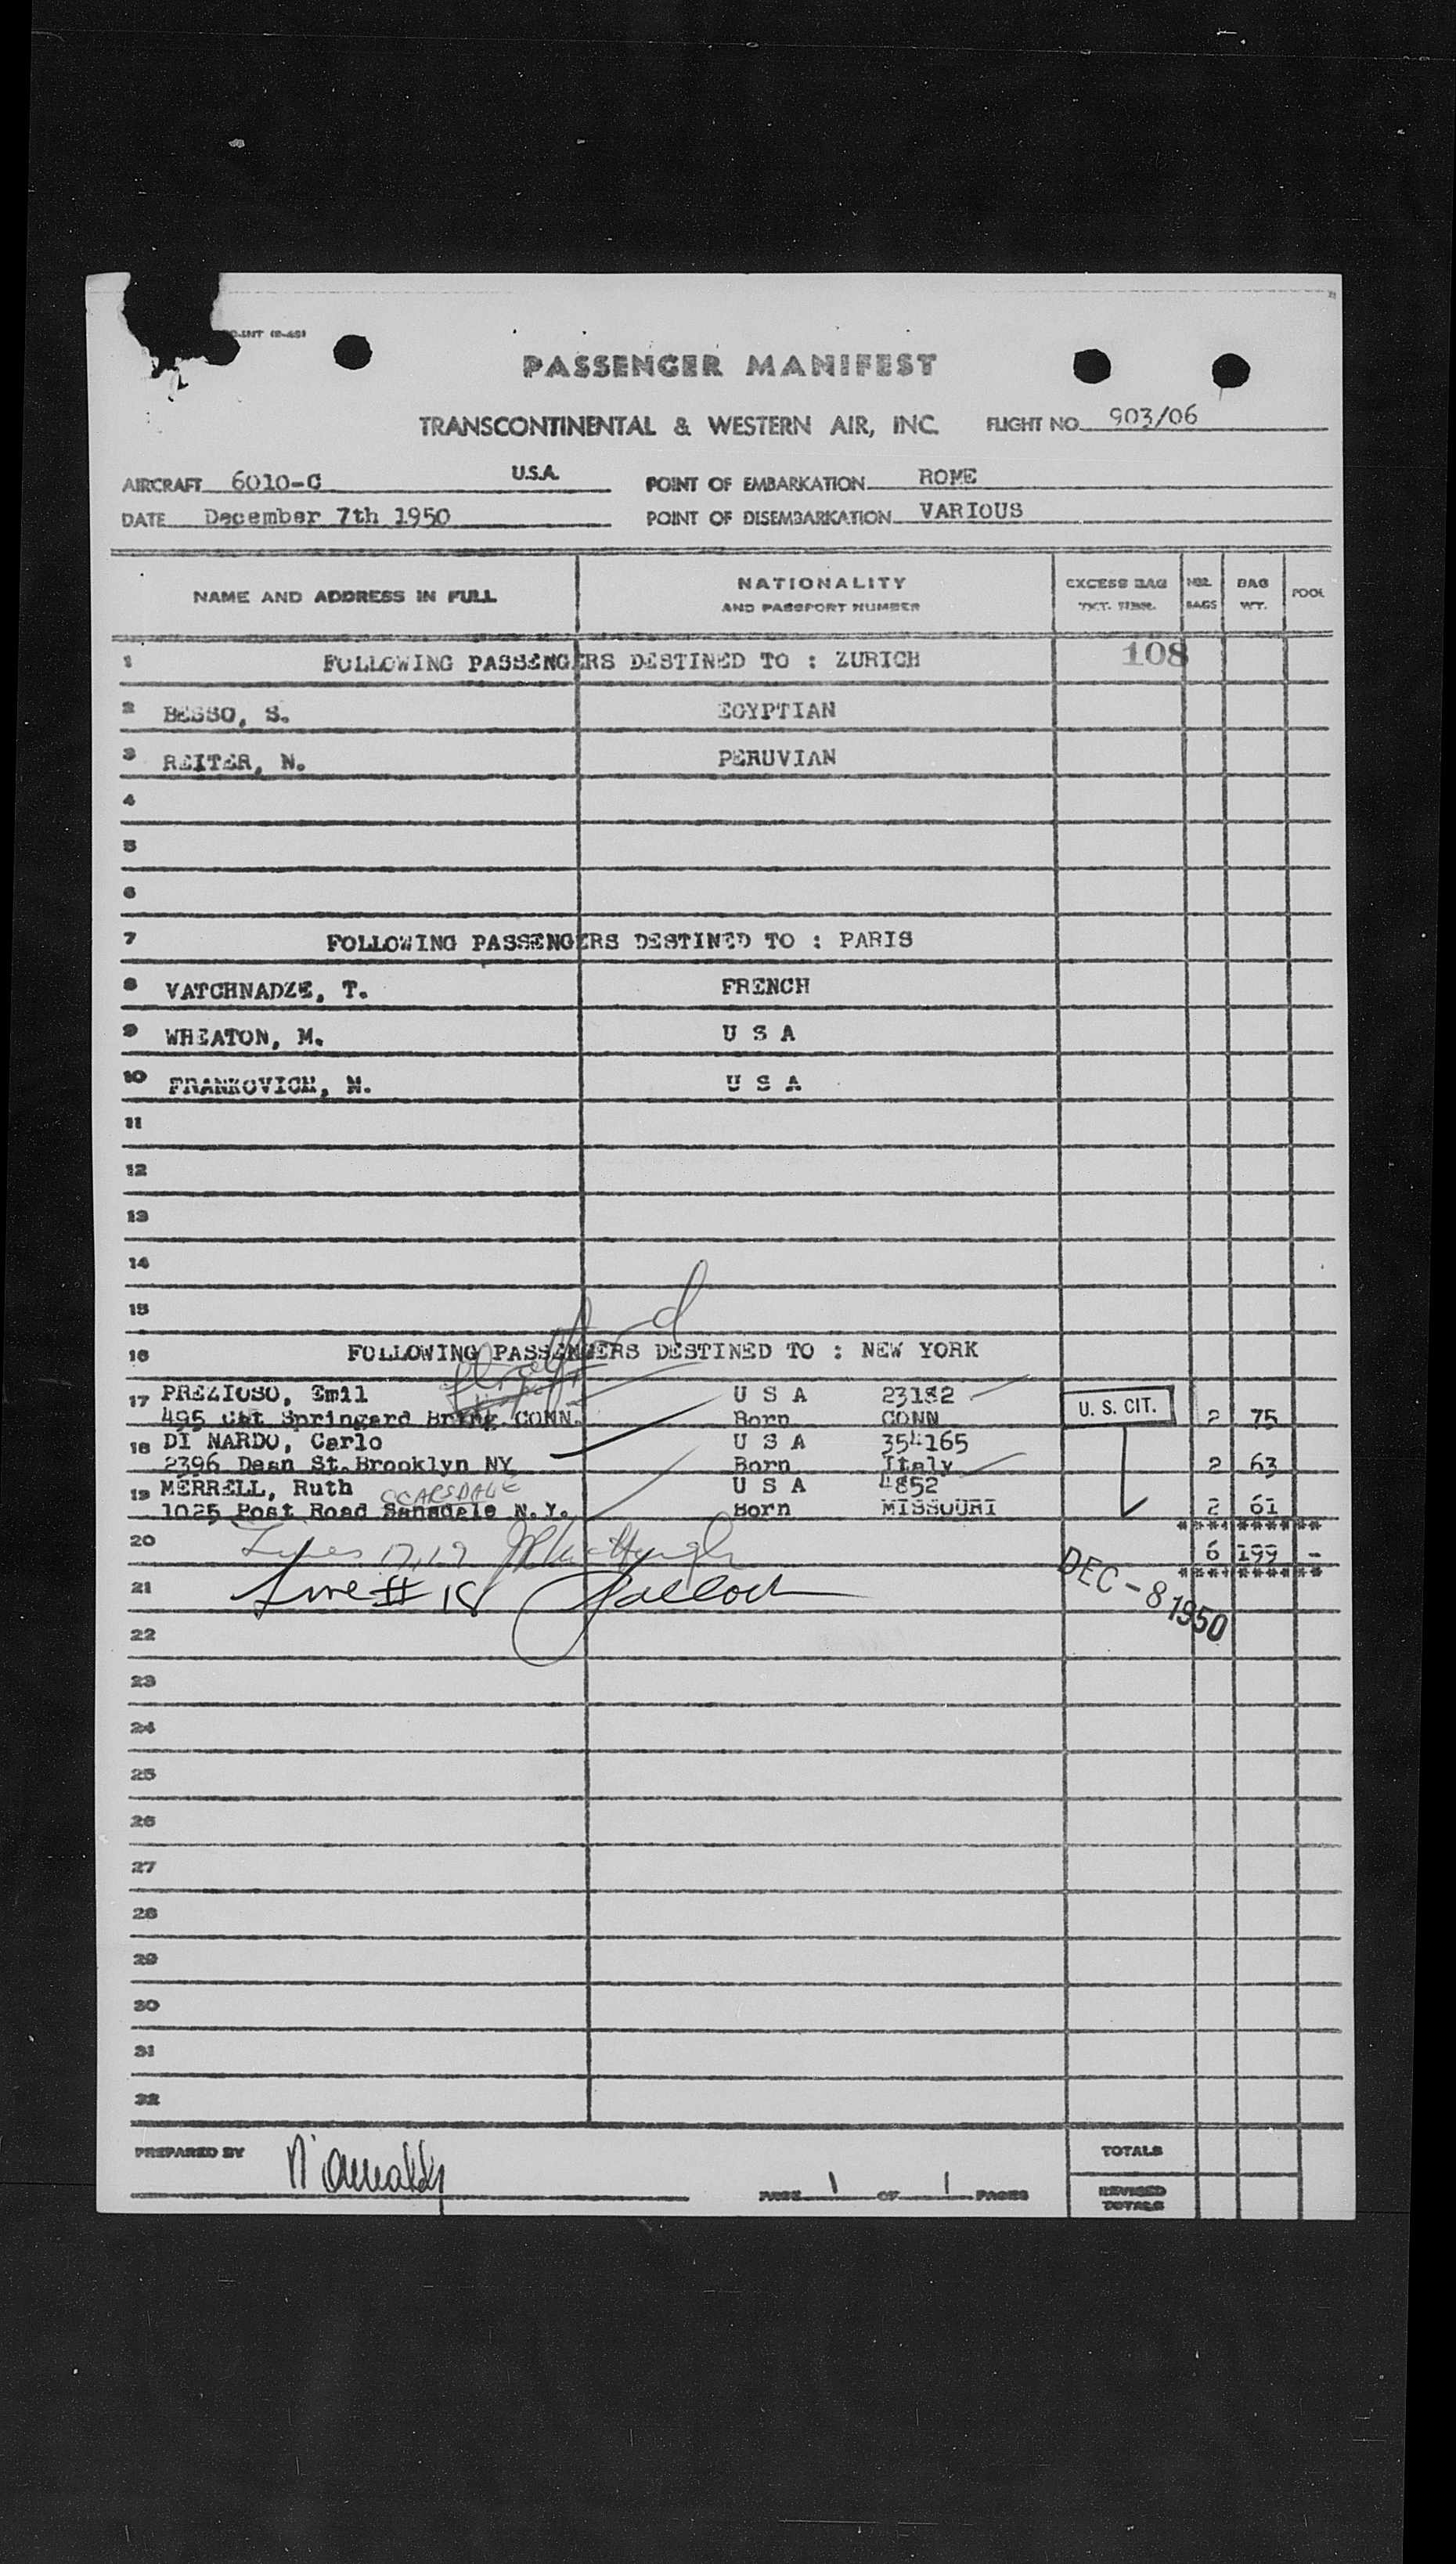 PASSENGER MANIFEST
TRANSCONTINENTAL & WESTERN AIR, INC. FLIGHT NO. 903/06
AIRCRAFT 6010-C U.S.A. POINT OF EMBARKATION ROME
DATE December 7th 1950 POINT OF DISEMBARKATION VARIOUS
NAME AND ADDRESS IN FULL NATIONALITY AND PASSPORT NUMBER EXCESS BAG TKT. NBR. NBR. BAGS BAG WT. POOL
1 FOLLOWING PASSENGERS DESTINED TO : ZURICH 108
2 BESSO, S. EGYPTIAN
3 REITER, N. PERUVIAN
4
5
6
7 FOLLOWING PASSENGERS DESTINED TO : PARIS
8 VATCHNADZE, T. FRENCH
9 WHEATON, M. U S A
10 FRANKOVICH, M. U S A
11
12
13
14
15
16 FOLLOWING PASSENGERS DESTINED TO : NEW YORK
17 PREZIOSO, Emil U S A 23182 U. S. CIT.
495 Springard CONN. Born CONN 2 75
18 DI NARDO, Carlo U S A 354165
2396 Dean St. Brooklyn NY Born Italy 2 63
19 MERRELL, Ruth SCARSDALE U S A 4852
1025 Post Road Sansdale N.Y. Born MISSOURI 2 61
20 Lines 17, 19 6 199 -
DEC - 8 1950
21 Line # 18
22
23
24
25
26
27
28
29
30
31
32
PREPARED BY PAGE 1 OF 1 PAGES TOTALS
REVISED TOTALS